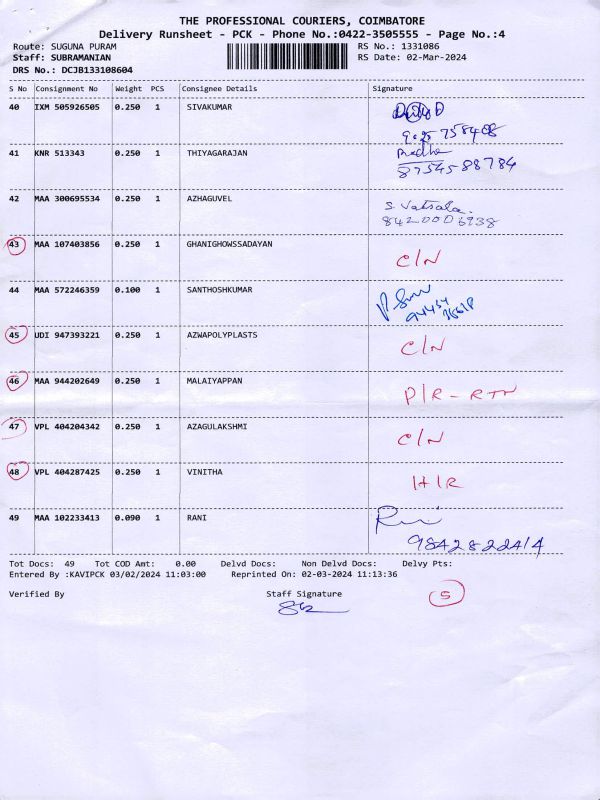 THE PROFESSIONAL COURIERS, COIMBATORE
Delivery Runsheet - PCK - Phone No.:0422-3505555 - Page No.:4
Route: SUGUNA PURAM RS No.: 1331086
Staff: SUBRAMANIAN RS Date: 02-Mar-2024
DRS No.: DCJB133108604
S No Consignment No Weight PCS Consignee Details Signature
40 IXM 505926505 0.250 1 SIVAKUMAR
41 KNR 513343 0.250 1 THIYAGARAJAN
8754588784
42 MAA 300695534 0.250 1 AZHAGUVEL
S. Vatsala.
8420006938
43 MAA 107403856 0.250 1 GHANIGHOWSSADAYAN
C/N
44 MAA 572246359 0.100 1 SANTHOSHKUMAR
45 UDI 947393221 0.250 1 AZWAPOLYPLASTS
C/N
46 MAA 944202649 0.250 1 MALAIYAPPAN
P/R - RTN
47 VPL 404204342 0.250 1 AZAGULAKSHMI
C/N
48 VPL 404287425 0.250 1 VINITHA
H/R
49 MAA 102233413 0.090 1 RANI
9842822414
Tot Docs: 49 Tot COD Amt: 0.00 Delvd Docs: Non Delvd Docs: Delvy Pts:
Entered By :KAVIPCK 03/02/2024 11:03:00 Reprinted On: 02-03-2024 11:13:36
Verified By Staff Signature
5